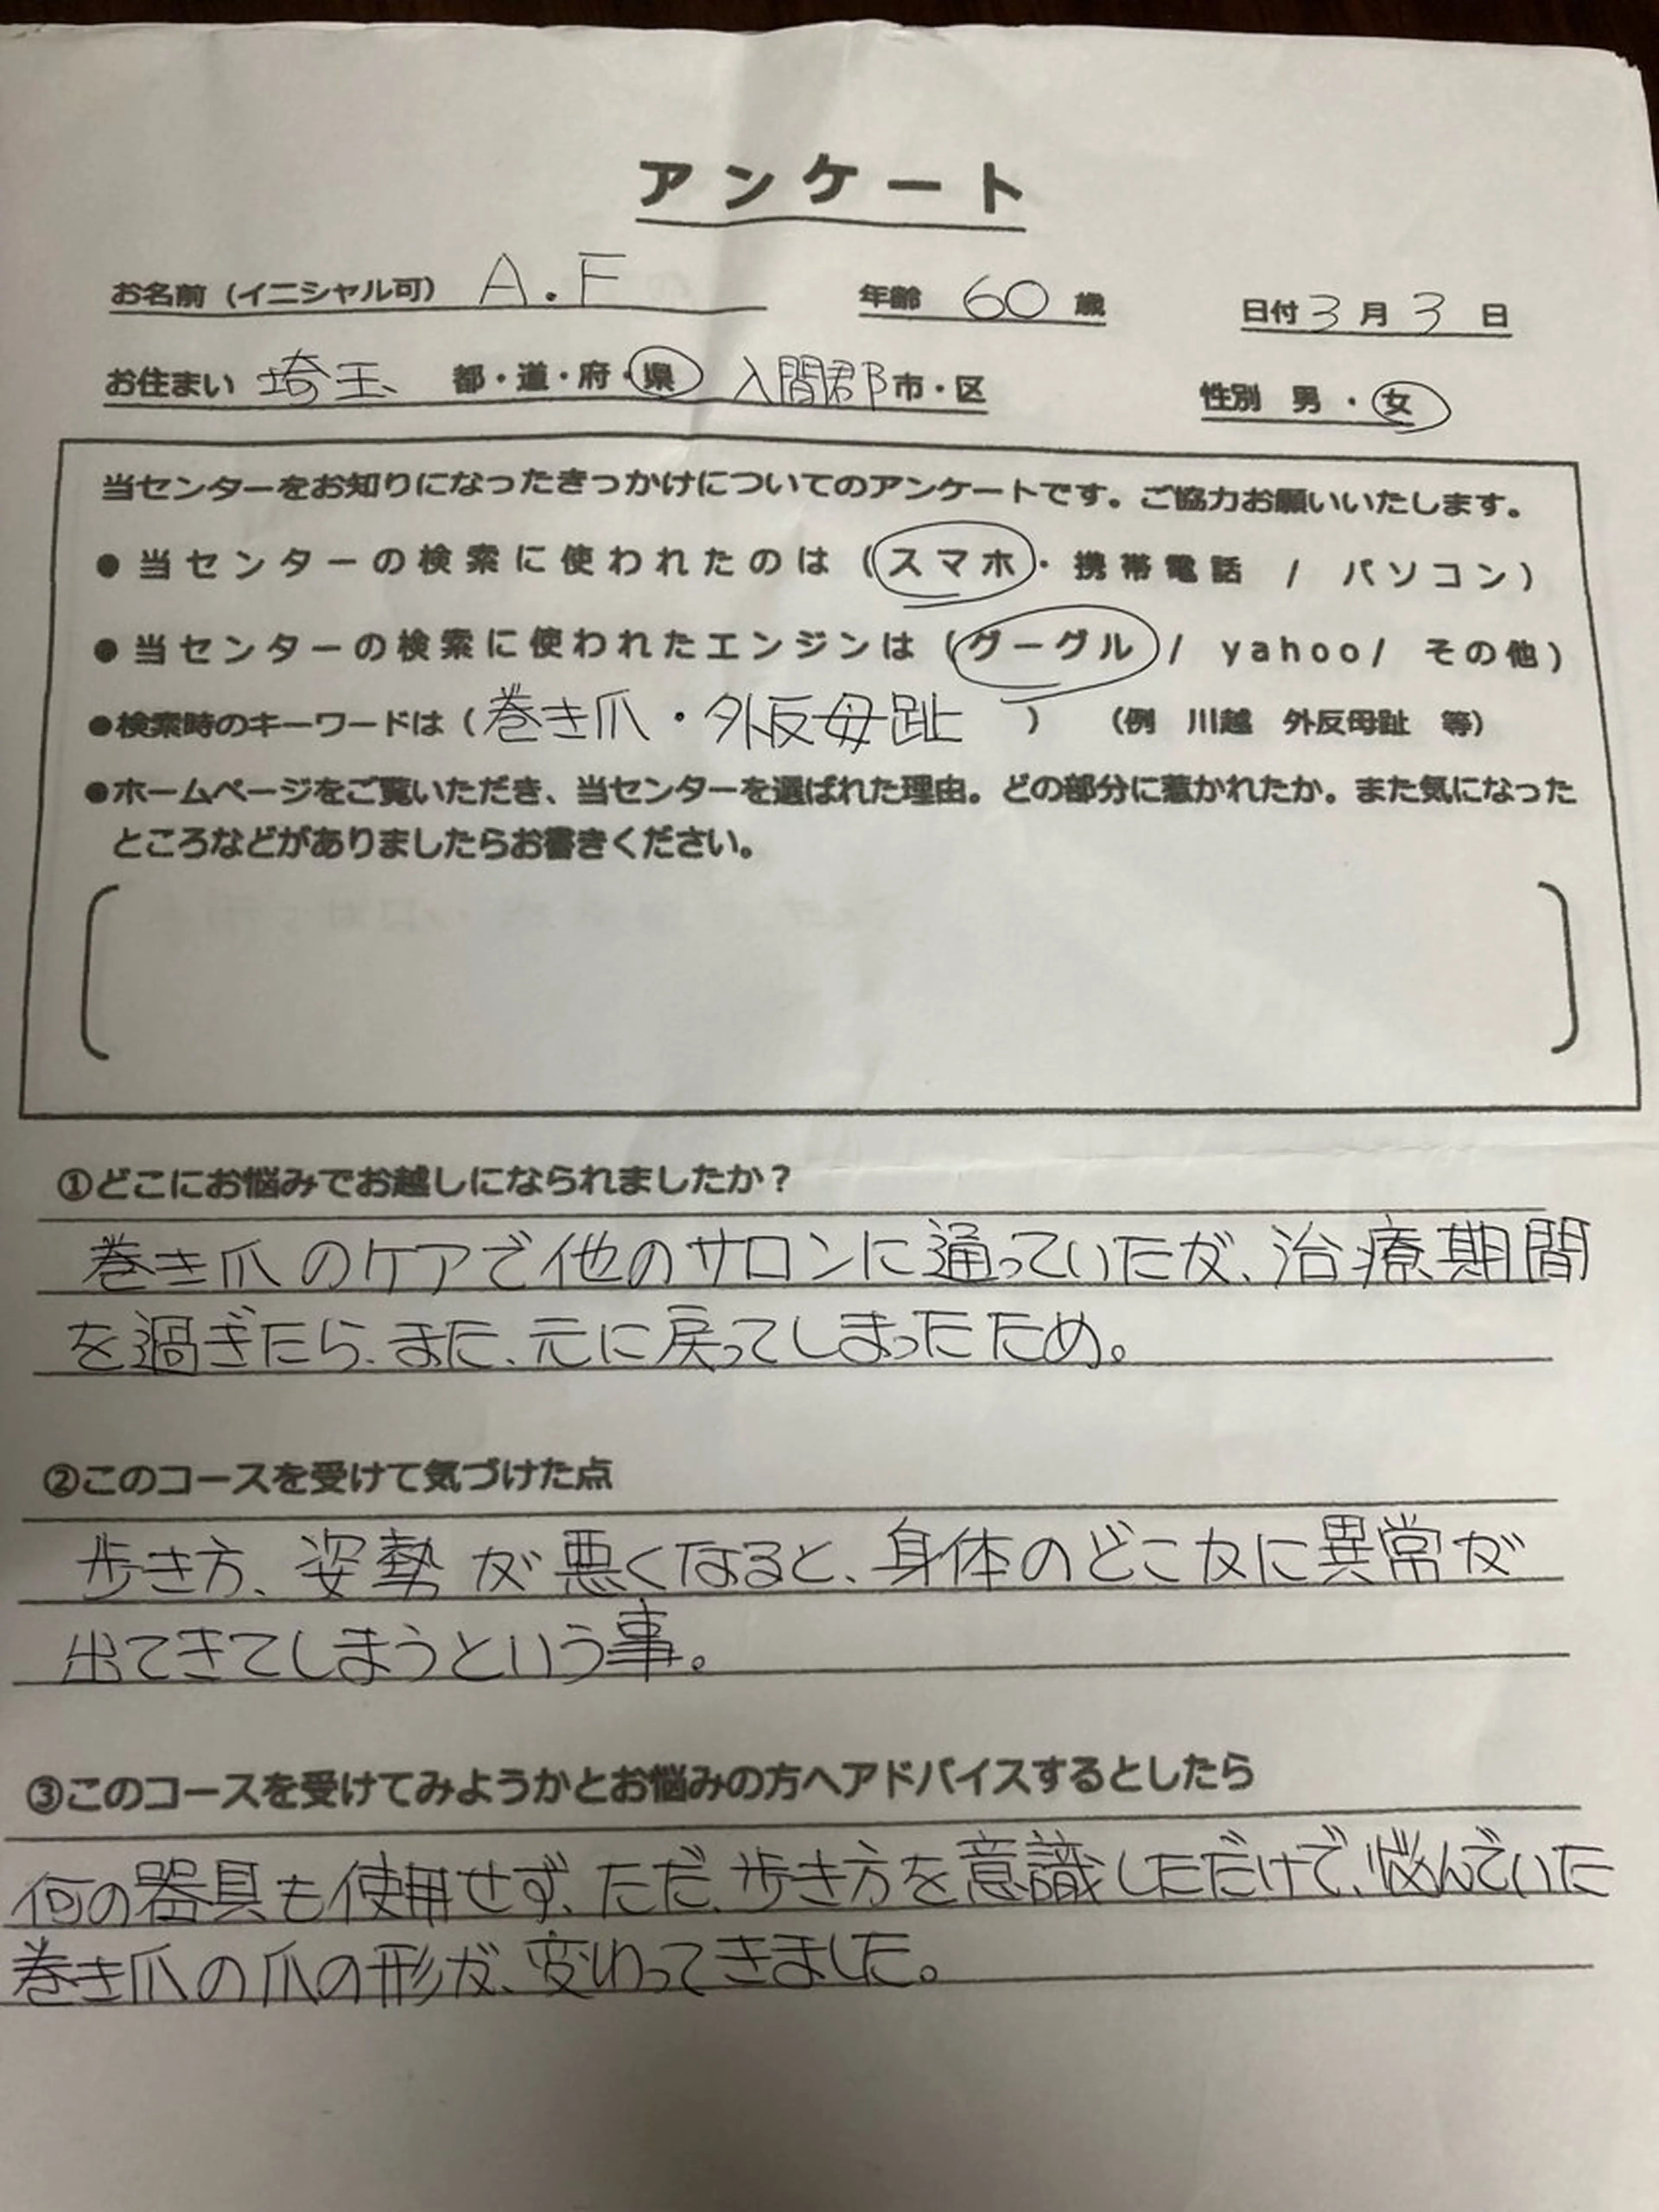 アンケート
お名前（イニシャル可） A.F 年齢 60 歳 日付 3 月 3 日
お住まい 埼玉 都・道・府・県 入間郡 市・区 性別 男・女
当センターをお知りになったきっかけについてのアンケートです。ご協力お願いいたします。
●当センターの検索に使われたのは（スマホ・携帯電話 / パソコン）
●当センターの検索に使われたエンジンは（グーグル/ yahoo/ その他）
●検索時のキーワードは（巻き爪・外反母趾 ） （例 川越 外反母趾 等）
●ホームページをご覧いただき、当センターを選ばれた理由。どの部分に惹かれたか。また気になった
ところなどがありましたらお書きください。
①どこにお悩みでお越しになられましたか？
巻き爪のケアで他のサロンに通っていたが、治療期間
を過ぎたら、また、元に戻ってしまったため。
②このコースを受けて気づけた点
歩き方、姿勢が悪くなると、身体のどこかに異常が
出てきてしまうという事。
③このコースを受けてみようかとお悩みの方へアドバイスするとしたら
何の器具も使用せず、ただ、歩き方を意識しただけで、悩んでいた
巻き爪の爪の形が、変わってきました。